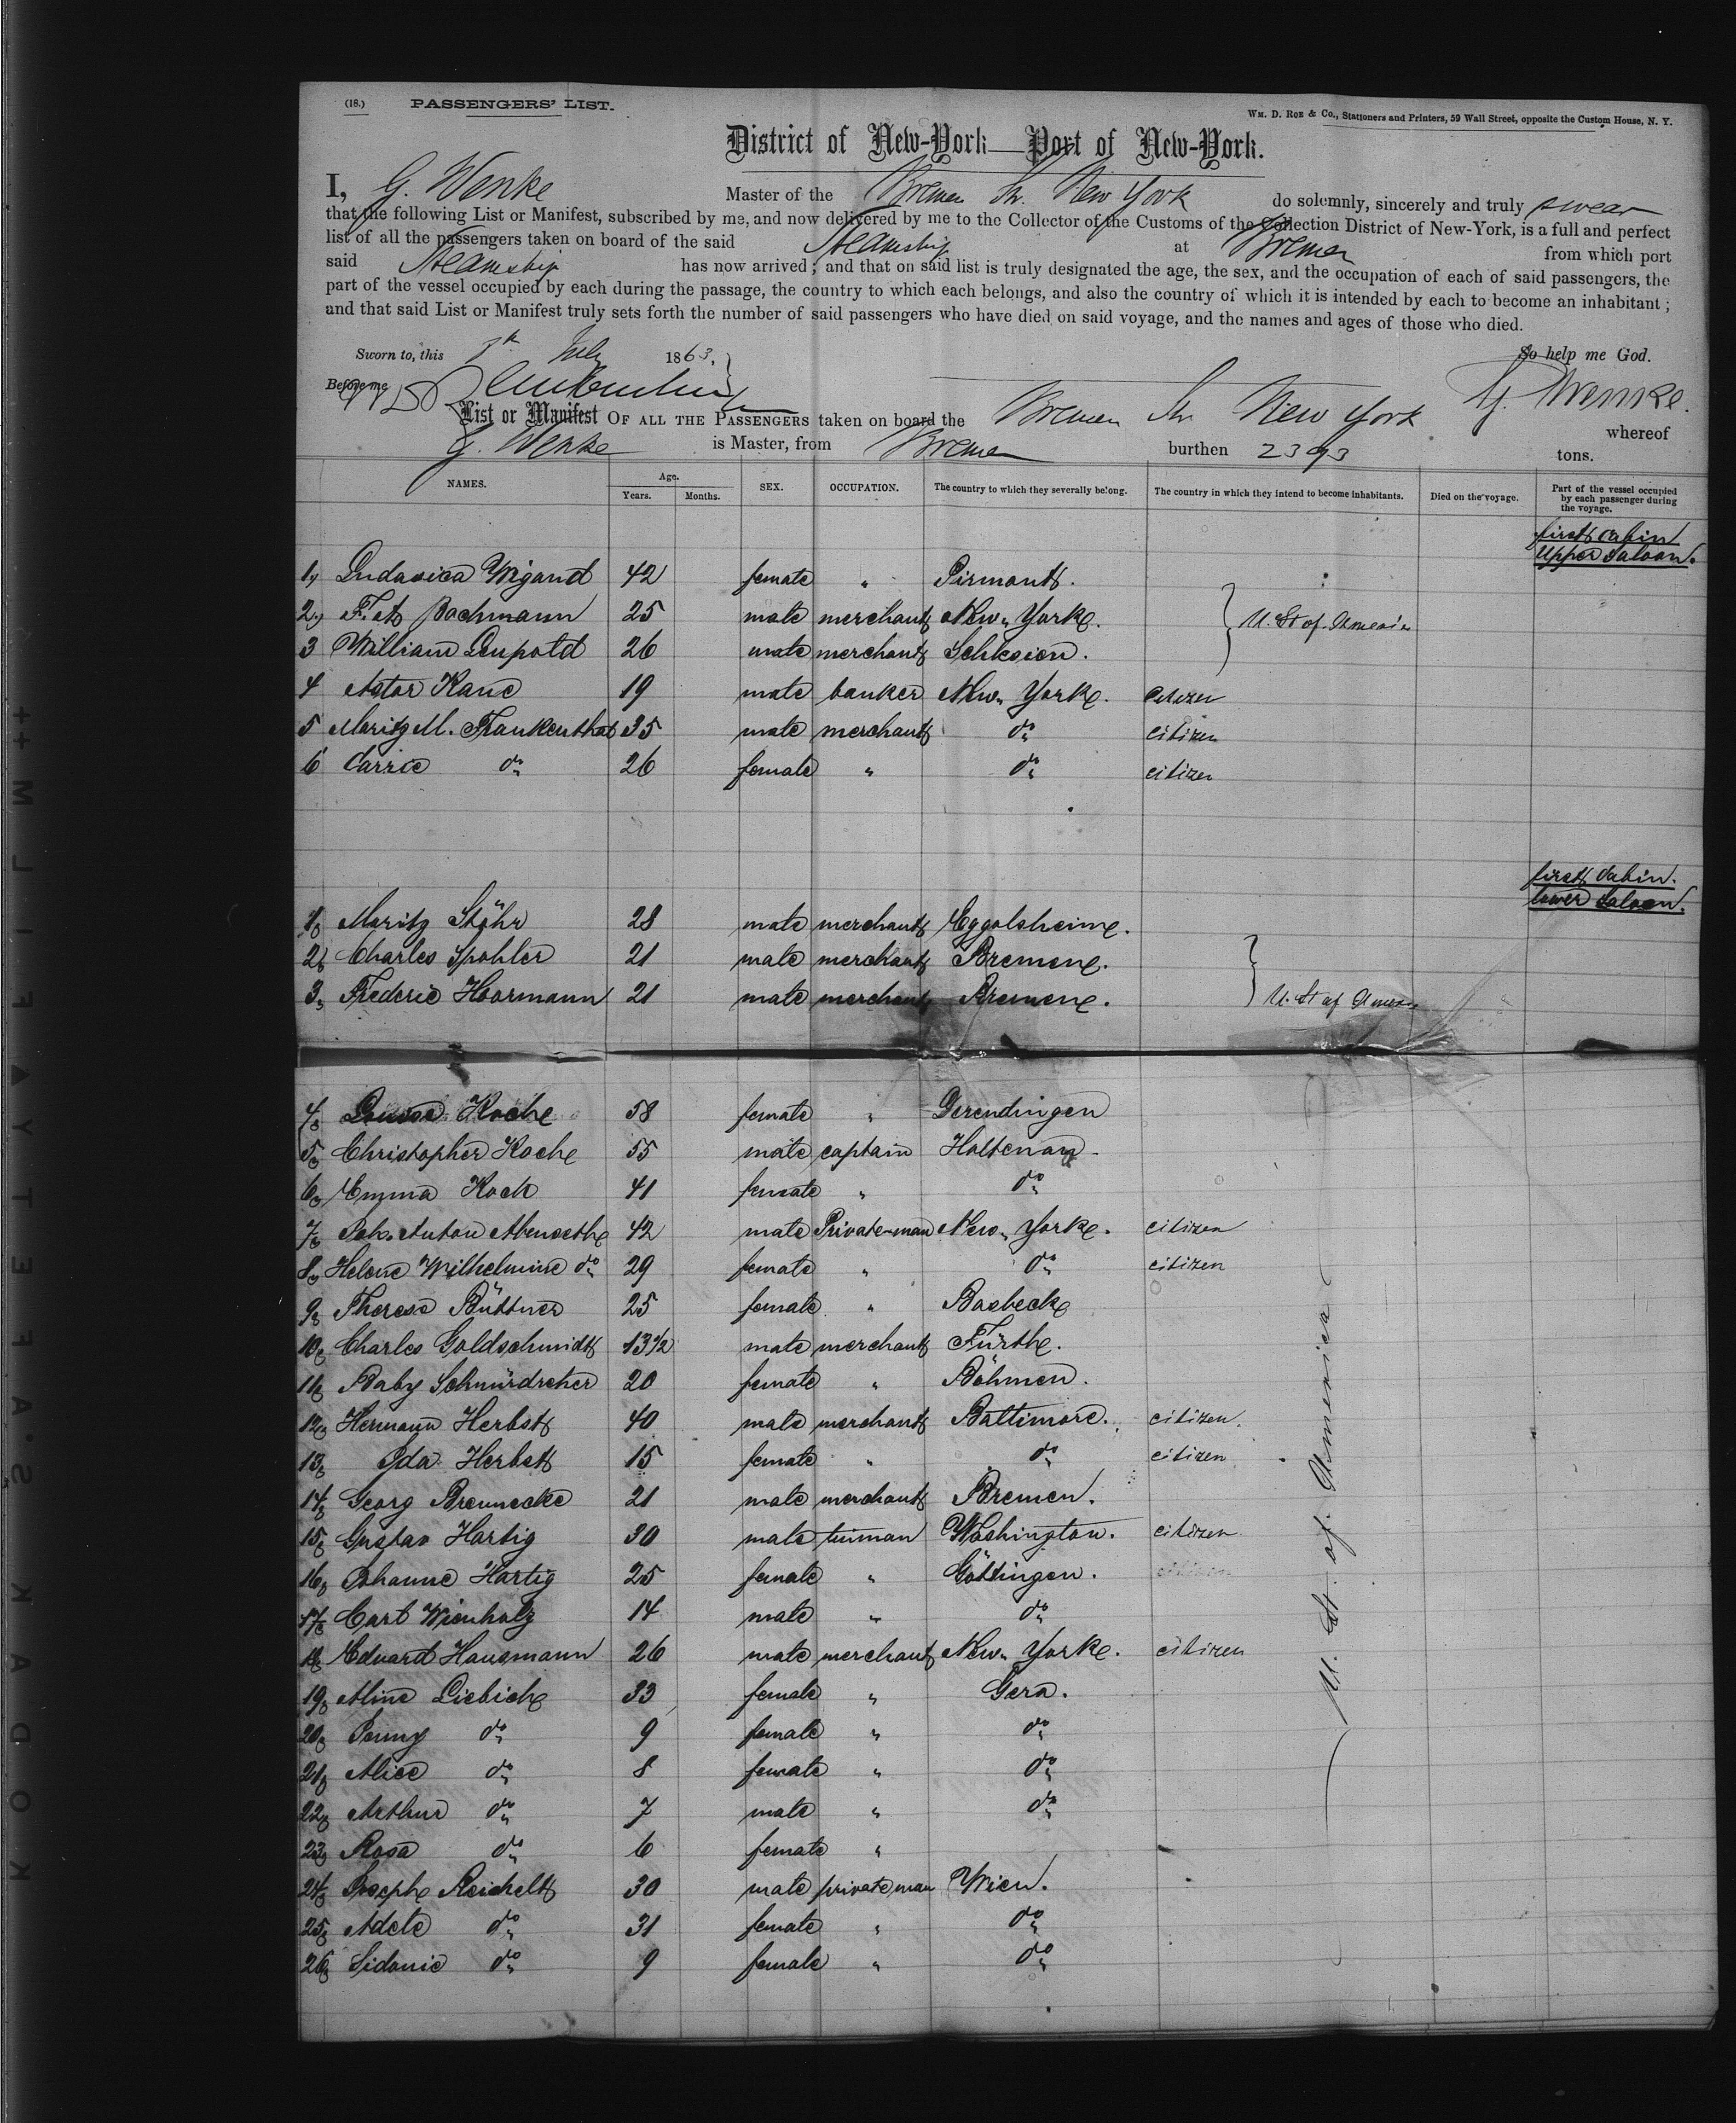 (18.) PASSENGERS' LIST.
WM. D. ROE & CO., Stationers and Printers, 59 Wall Street, opposite the Custom House, N. Y.
District of New-York—Port of New-York.
I, G. Wenke Master of the Bremen Str. New York do solemnly, sincerely and truly swear
that the following List or Manifest, subscribed by me, and now delivered by me to the Collector of the Customs of the Collection District of New-York, is a full and perfect
list of all the passengers taken on board of the said Steamship at Bremen from which port
said Steamship has now arrived; and that on said list is truly designated the age, the sex, and the occupation of each of said passengers, the
part of the vessel occupied by each during the passage, the country to which each belongs, and also the country of which it is intended by each to become an inhabitant;
and that said List or Manifest truly sets forth the number of said passengers who have died on said voyage, and the names and ages of those who died.
Sworn to, this July 1863, So help me God.
Before me G. Wenke.
List or Manifest OF ALL THE PASSENGERS taken on board the Bremen Str. New York whereof
G. Wenke is Master, from Bremen burthen 2393 tons.
NAMES. Age. Years. Months. SEX. OCCUPATION. The country to which they severally belong. The country in which they intend to become inhabitants. Died on the voyage. Part of the vessel occupied by each passenger during the voyage.
first cabin
Upper Saloon.
1, Ludovica Wigand 42 female " Pirmont.
2, Bachmann 25 male merchant New-York. U. St of America
3 William Leupold 26 male merchant Schlesien.
4 Astor Kane 19 male banker New-York. citizen
5 Moritz M. Frankenthal 35 male merchant do citizen
6 Carrie do 26 female " do citizen
first Cabin.
lower Saloon.
1, Moritz Stöhr 28 male merchant Eggolsheim.
2, Charles Spohler 21 male merchant Bremen.
3, Frederic Hoormann 21 male merchant Bremen. U. St of America
4, Louise Koch 58 female "
5, Christopher Koch 55 male captain Holtenau.
6, Emma Koch 41 female " do
7, Joh. Anton Abenseth 42 male Private-man New-York. citizen
8, Helene Wilhelmine do 29 female " do citizen
9, Therese Büttner 25 female " Basbeck
10, Charles Goldschmidt 13 1/2 male merchant Fürth.
11, Baby Schnürdreher 20 female " Böhmen.
12, Hermann Herbst 40 male merchant Baltimore. citizen.
13, Ida Herbst 15 female " do citizen
14, Georg Brennecke 21 male merchant Bremen.
15, Gustav Hartig 30 male tinman Washington. citizen
16, Johanne Hartig 25 female " Göttingen.
17, Carl Wienholz 14 male " do
18, Eduard Hausmann 26 male merchant New-York. citizen
19, Aline Liebich 33 female " Gera.
20, Jenny do 9 female " do
21, Alice do 8 female " do
22, Arthur do 7 male " do
23, Rosa do 6 female "
24, Joseph Reichelt 30 male private man Wien.
25, Adele do 31 female " do
26, Sidonie do 9 female " do
U. St. of America
KODAK • SAFETY ▲ FILM